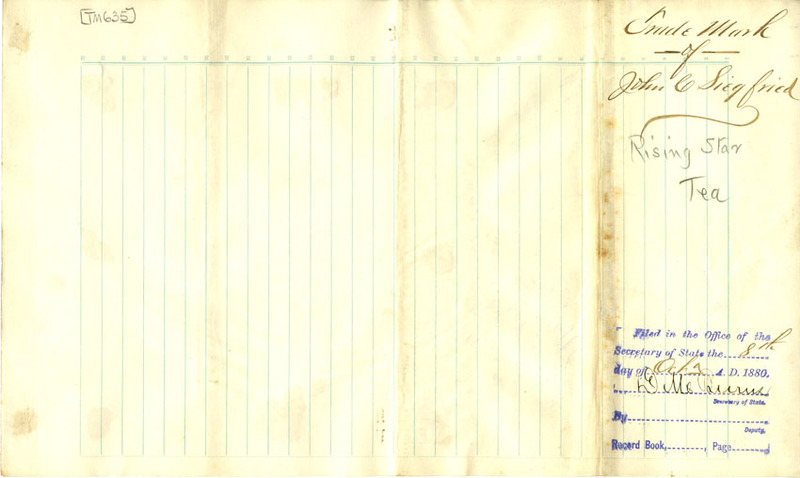 [TM635]
Trade Mark
of
John C Siegfried
Rising Star
Tea
Filed in the Office of the
Secretary of State the 8th
day of A. D. 1880.
D. M.
Secretary of State.
By
Deputy.
Record Book, Page